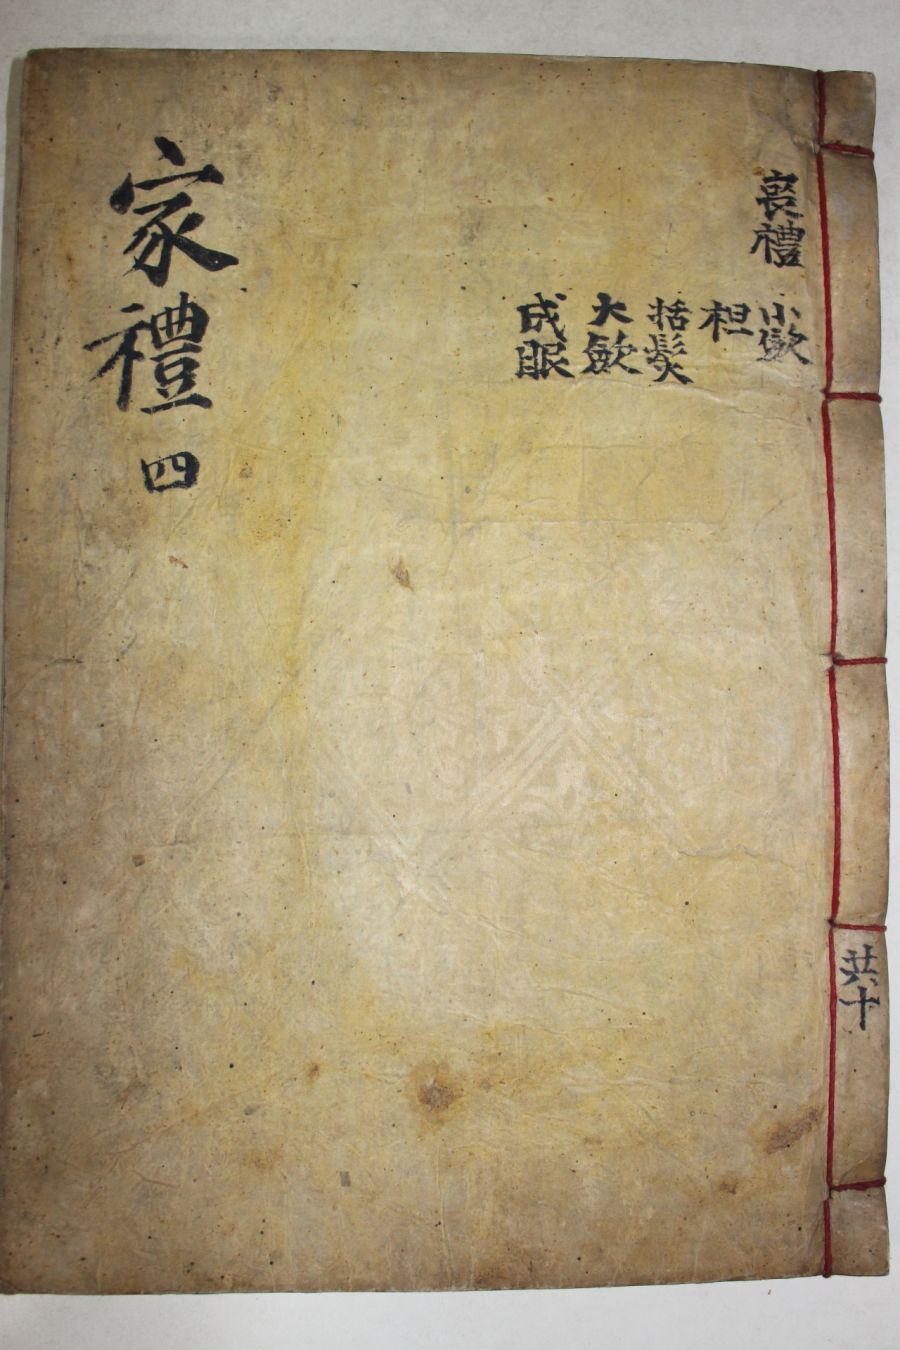 喪禮
小斂
袒
括髮
大斂
成服
家禮 四
共十